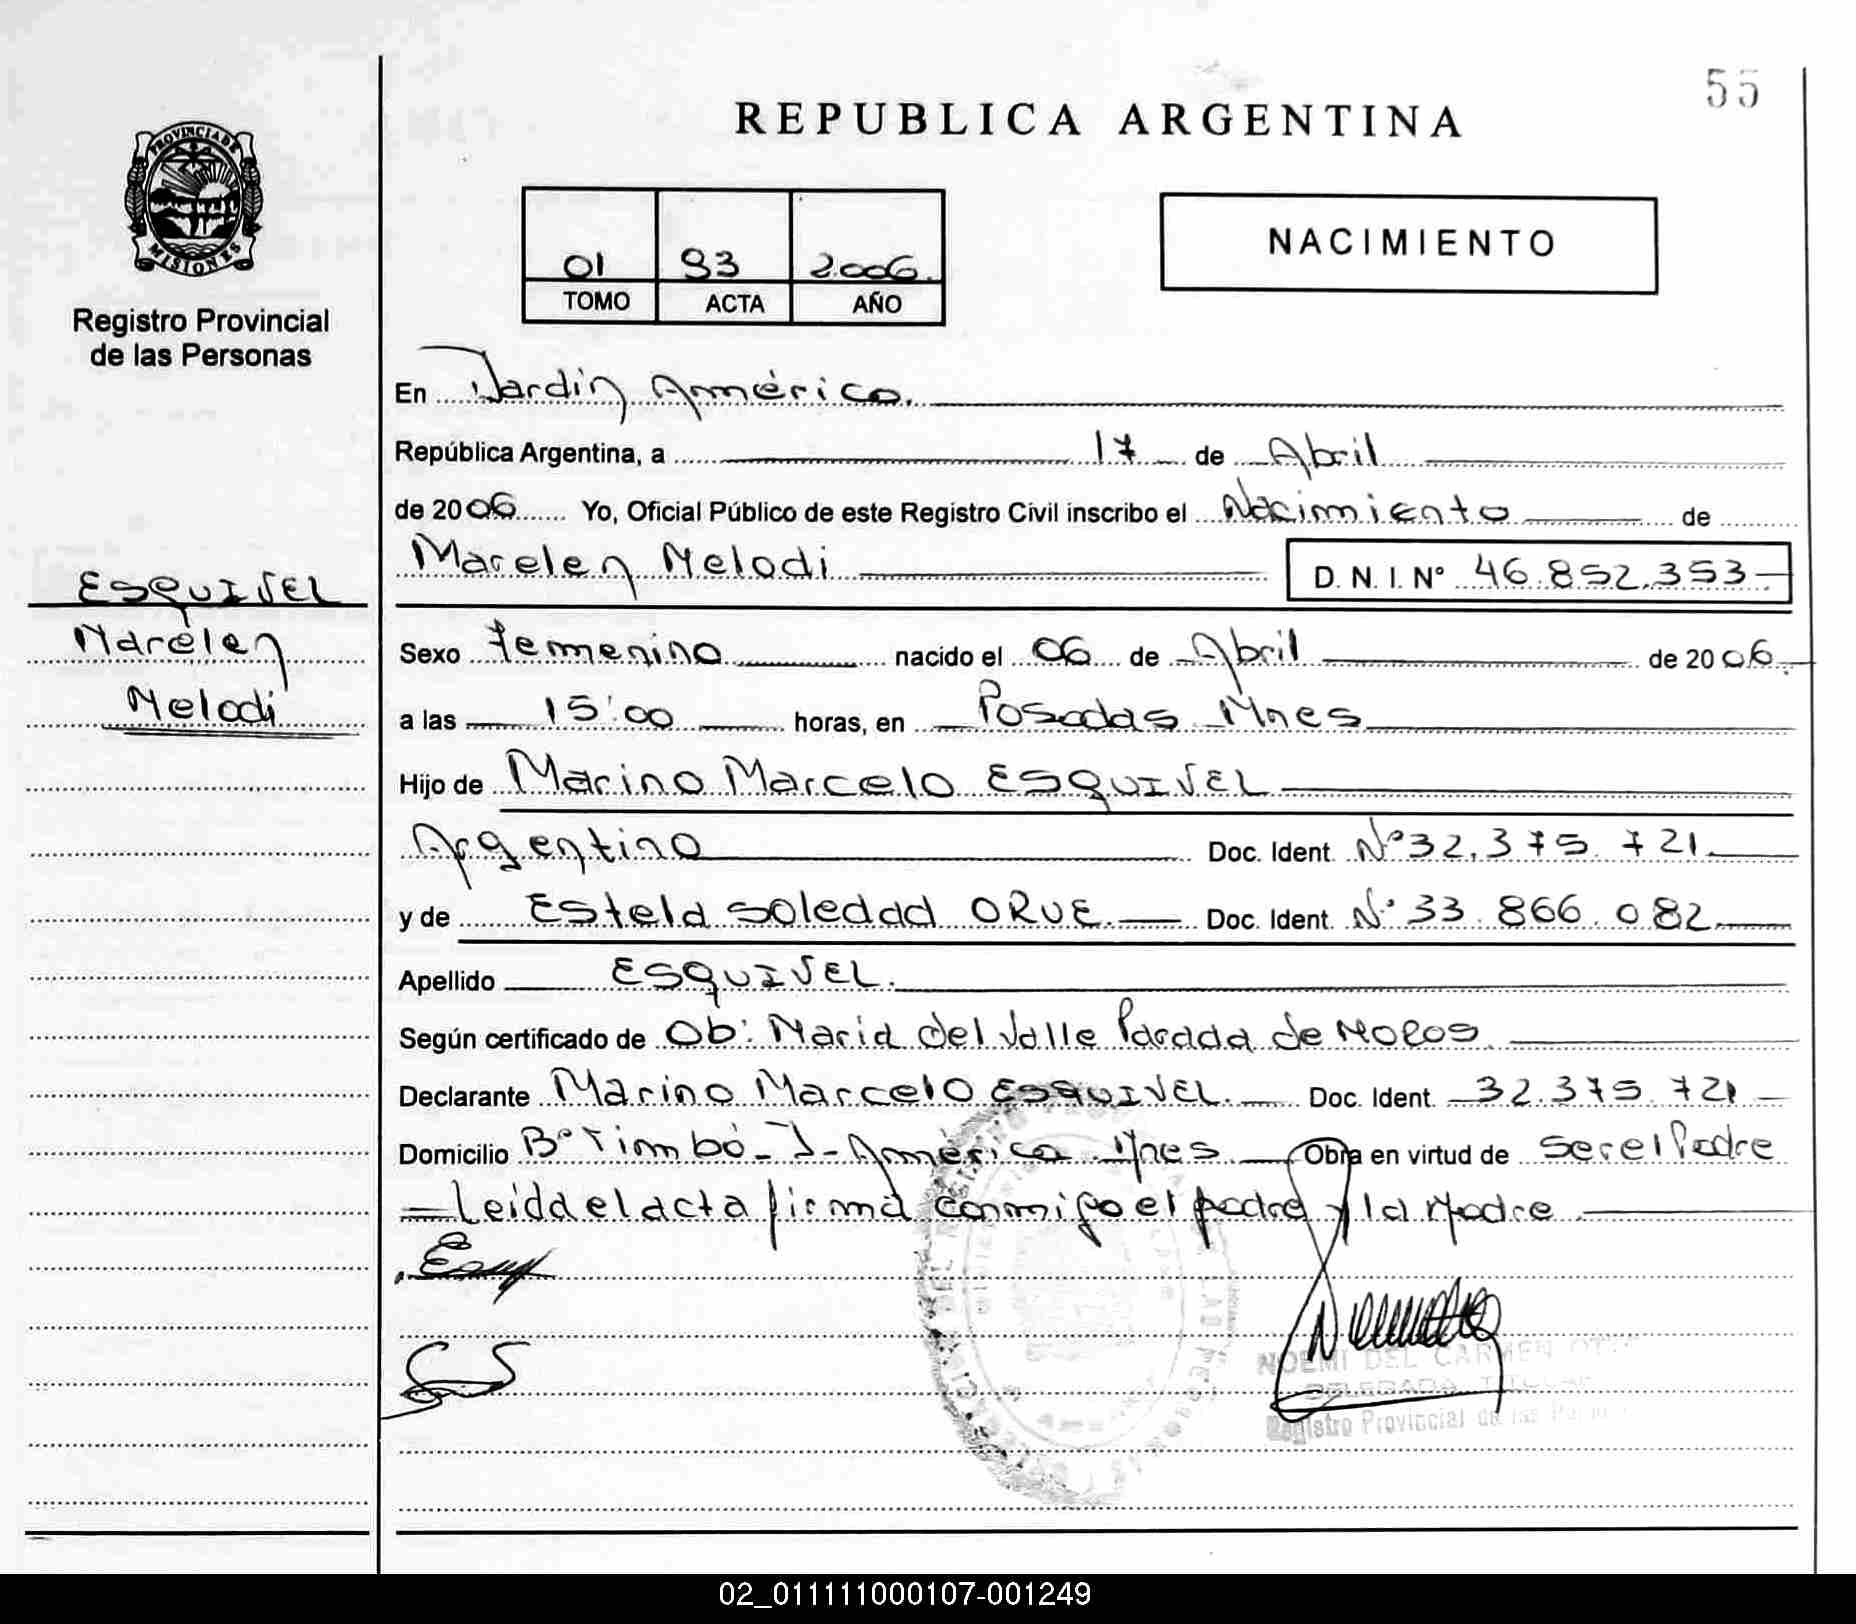 55
REPUBLICA ARGENTINA
PROVINCIA DE
MISIONES
Registro Provincial
de las Personas
01 93 2006.
TOMO ACTA AÑO
NACIMIENTO
En Jardín América.
República Argentina, a 17 de Abril
de 2006 Yo, Oficial Público de este Registro Civil inscribo el Nacimiento de
Marelen Melodi D. N. I. N° 46.852.353
ESQUIVEL
Marelen
Melodi
Sexo Femenino nacido el 06 de Abril de 2006.
a las 15:00 horas, en Posadas Mnes
Hijo de Marino Marcelo ESQUIVEL
Argentino Doc. Ident. N° 32.375.721.
y de Estela Soledad ORUE. Doc. Ident. N° 33.866.082
Apellido ESQUIVEL.
Según certificado de Ob: Maria del Valle Parada de Moros
Declarante Marino Marcelo ESQUIVEL. Doc. Ident. 32.375.721
Domicilio B° Timbó - J- América Mnes Obra en virtud de ser el Padre
Leida el acta firma conmigo el padre y la Madre
NOEMI DEL CARMEN
DELEGADA TITULAR
Registro Provincial de las
02_011111000107-001249